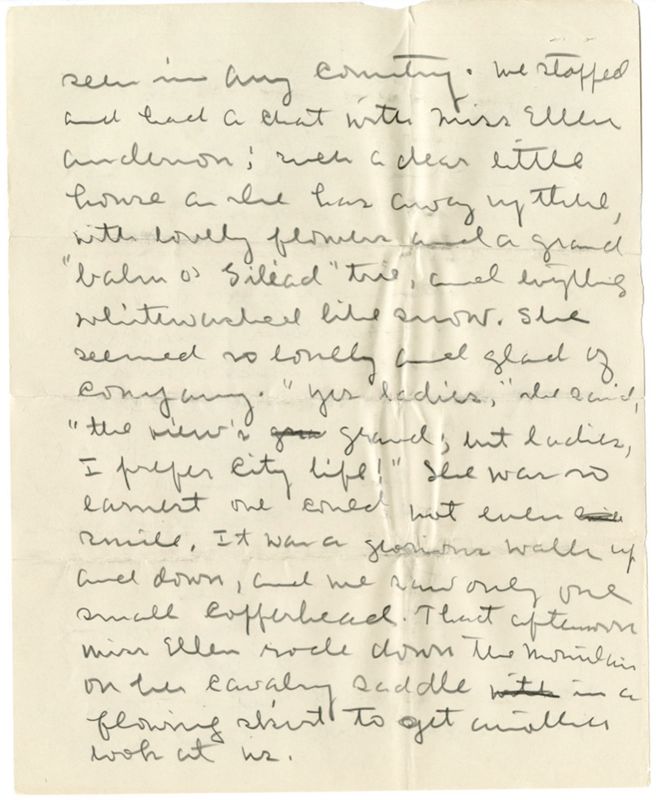 seen in any country. We stopped
and had a chat with Miss Ellen
Anderson; such a dear little
house as she has away up there,
with lovely flowers and a grand
"balm of Gilead" tree, and everything
whitewashed like snow. She
seemed so lonely and glad of
company. "Yes ladies," she said,
"the view's grand; but ladies,
I prefer City life!" She was so
earnest one could not even
smile. It was a glorious walk up
and down, and we saw only one
small copperhead. That afternoon
Miss Ellen rode down the mountain
on her cavalry saddle with in a
flowing skirt to get another
look at us.